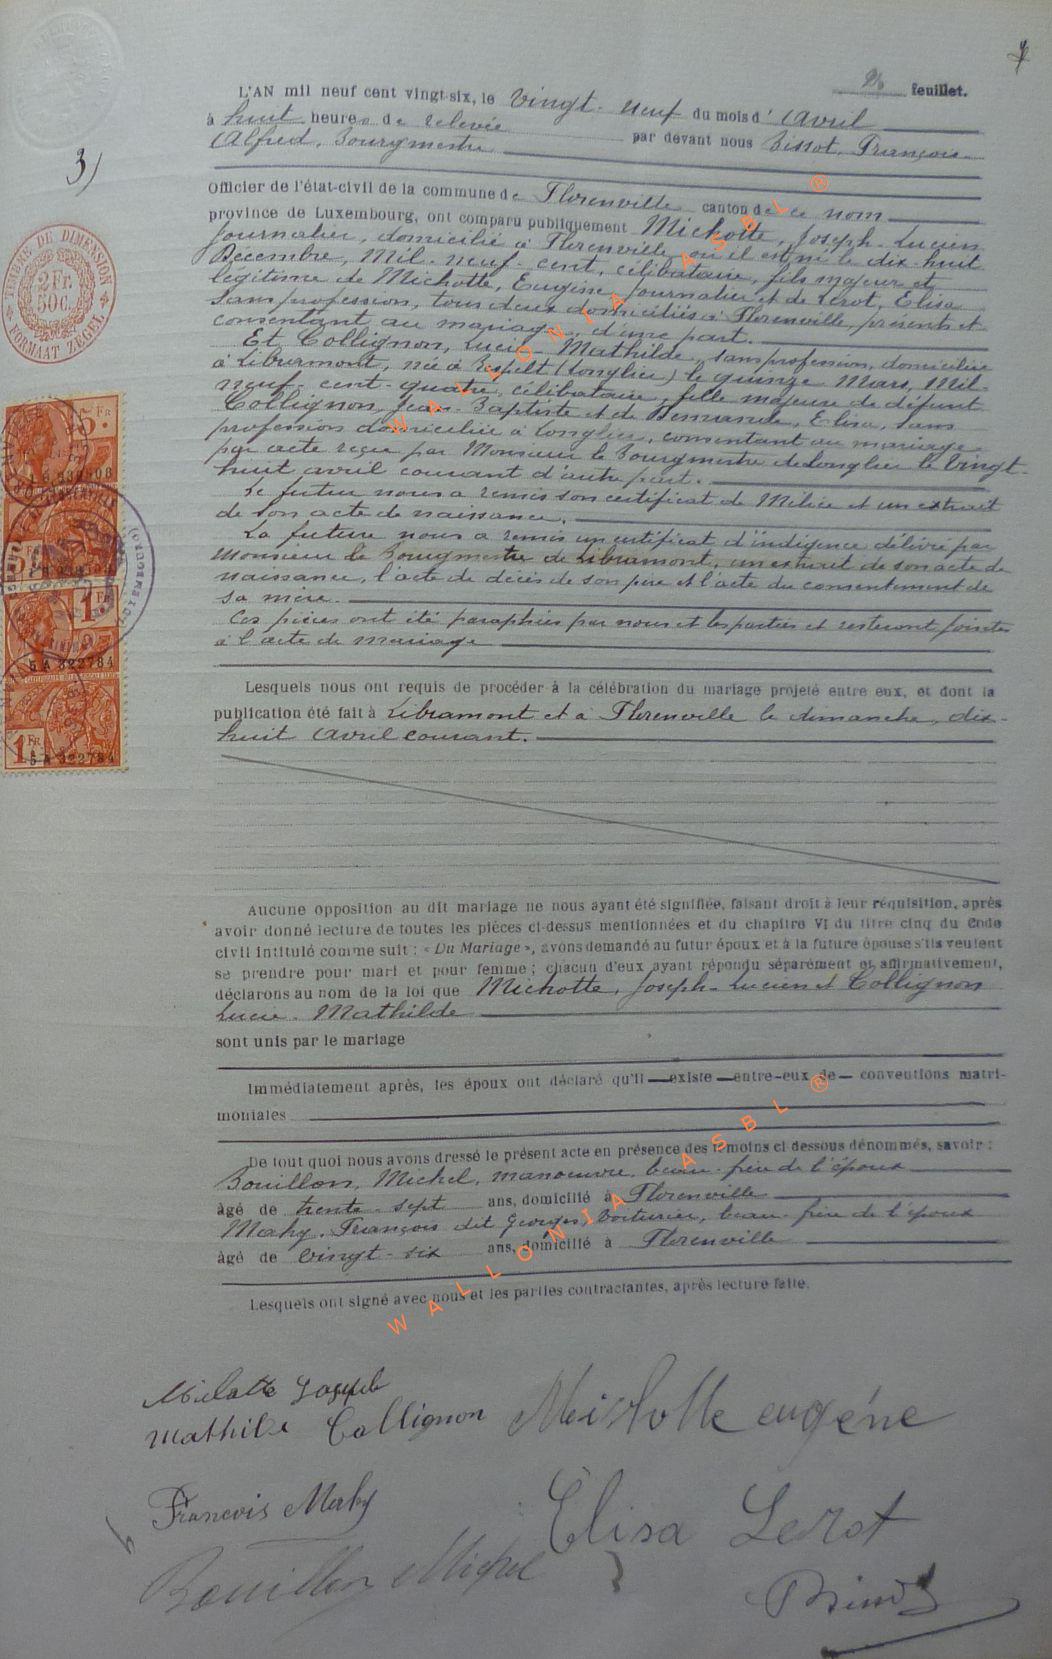 feuillet.
L'AN mil neuf cent vingt-six, le Vingt-neuf du mois d' Avril
à huit heures de relevée par devant nous Bissot, François
Alfred, Bourgmestre
3)
Officier de l'état-civil de la commune de Florenville canton de ce nom
province de Luxembourg, ont comparu publiquement Michotte, Joseph-Lucien
journalier, domicilié à Florenville où il est né le dix-huit
Décembre, Mil-neuf-cent, célibataire, fils majeur et
légitime de Michotte, Eugène journalier et de Lerot, Elisa
sans profession, tous deux domiciliés à Florenville, présents et
consentant au mariage, d'une part.
Et Collignon, Lucie-Mathilde, sans profession, domiciliée
à Libramont, née à Respelt (Longlier) le quinze Mars, Mil-
neuf-cent-quatre, célibataire, fille majeure de défunt
Collignon, Jean-Baptiste et de Elisa, sans
profession domiciliée à Longlier, consentant au mariage
par acte reçu par Monsieur le Bourgmestre de Longlier le Vingt-
huit avril courant d'autre part.
Le futur nous a remis son certificat de Milice et un extrait
de son acte de naissance.
La future nous a remis un certificat d'indigence délivré par
Monsieur le Bourgmestre de Libramont, un extrait de son acte de
naissance, l'acte de décès de son père et l'acte du consentement de
sa mère.
Ces pièces ont été paraphées par nous et les parties et resteront jointes
à l'acte de mariage
Lesquels nous ont requis de procéder à la célébration du mariage projeté entre eux, et dont la
publication été fait à Libramont et à Florenville le dimanche, dix-
huit Avril courant.
Aucune opposition au dit mariage ne nous ayant été signifiée, faisant droit à leur réquisition, après
avoir donné lecture de toutes les pièces ci-dessus mentionnées et du chapitre VI du titre cinq du Code
civil intitulé comme suit : « Du Mariage », avons demandé au futur époux et à la future épouse s'ils veulent
se prendre pour mari et pour femme ; chacun d'eux ayant répondu séparément et affirmativement,
déclarons au nom de la loi que Michotte, Joseph-Lucien et Collignon
Lucie-Mathilde
sont unis par le mariage
Immédiatement après, les époux ont déclaré qu'il existe entre-eux de conventions matri-
moniales
De tout quoi nous avons dressé le présent acte en présence des témoins ci dessous dénommés, savoir :
Bouillon, Michel, manoeuvre, beau-frère de l'époux
âgé de trente-sept ans, domicilié à Florenville
Mahy, François dit Georges, Voiturier, beau-frère de l'époux
âgé de Vingt-six ans, domicilié à Florenville
Lesquels ont signé avec nous et les parties contractantes, après lecture faite.
Michotte Joseph
Mathilde Collignon
Michotte eugéne
Francois Mahy
Elisa Lerot
Bouillon Michel
TIMBRE DE DIMENSION
2 Fr.
50C.
FORMAAT ZEGEL
5 Fr
5 Fr
1 Fr
5 A 322784
1 Fr
5 A 322784
WALLONIA ASBL ®
WALLONIA ASBL ®